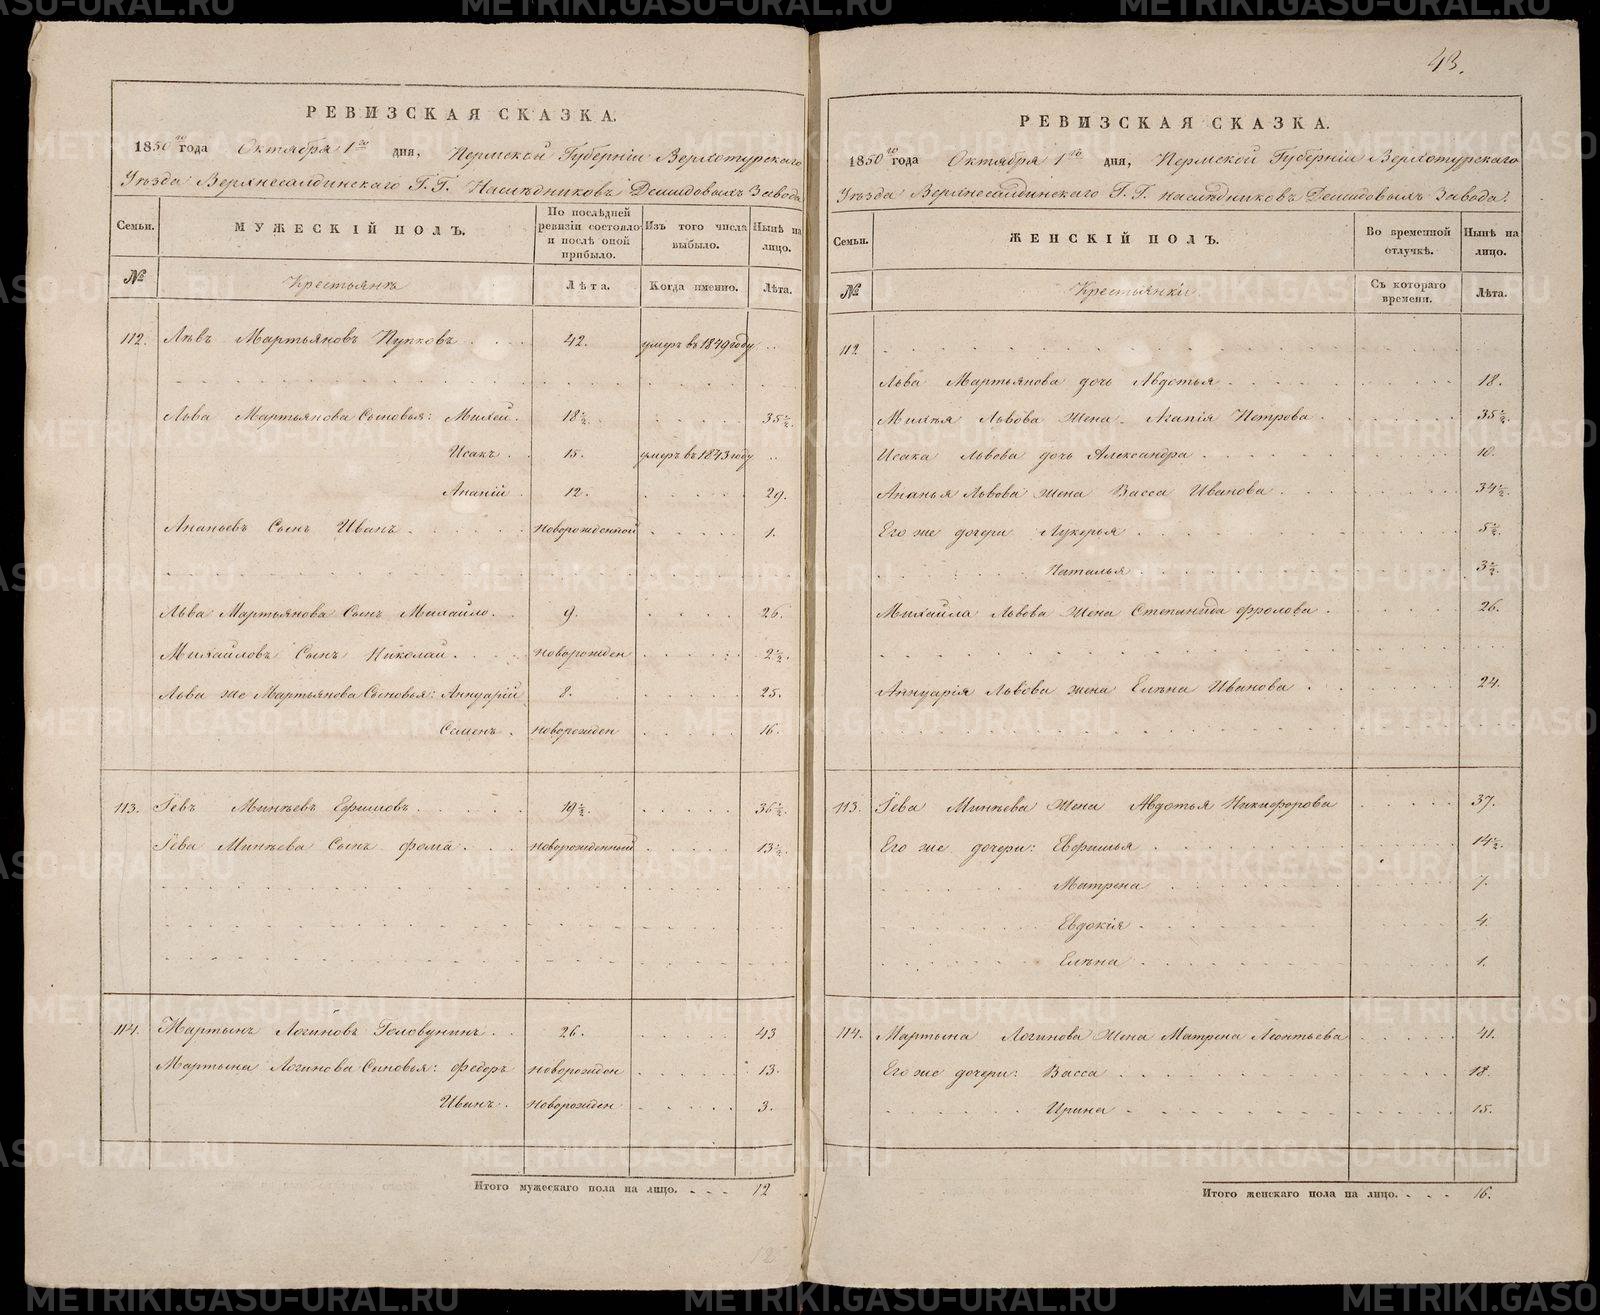 43.
РЕВИЗСКАЯ СКАЗКА.
1850го года Октября 1го дня, Пермской Губерніи Верхотурскаго
Уѣзда Верхнесалдинскаго Г.Г. Наслѣдниковъ Демидовыхъ Завода
Семьи. МУЖЕСКІЙ ПОЛЪ. По послѣдней ревизіи состояло и послѣ оной прибыло. Изъ того числа выбыло. Нынѣ на лицо.
№ Крестьянъ Лѣта. Когда именно. Лѣта.
112. Лѣвъ Мартьяновъ Пупковъ 42. умеръ въ 1849 году
Льва Мартьянова Сыновья: Михей 18½. 35½.
Исакъ 15. умеръ въ 1843 году
Ананій 12. 29.
Ананьевъ Сынъ Иванъ новорожденной 1.
Льва Мартьянова Сынъ Михайло. 9. 26.
Михайловъ Сынъ Николай. новорожден 2½.
Льва же Мартьянова Сыновья: Аннуарій 8. 25.
Семенъ. новорожден 16.
113. Іевъ Минѣевъ Ефимовъ 19½ 36½
Іева Минѣева Сынъ фома. новорожденный 13½.
114. Мартынъ Логиновъ Головунинъ. 26. 43
Мартына Логинова Сыновья: федоръ новорожден 13.
Иванъ. новорожден 3.
Итого мужескаго пола на лицо. 12
РЕВИЗСКАЯ СКАЗКА.
1850го года Октября 1го дня, Пермской Губерніи Верхотурскаго
Уѣзда Верхнесалдинскаго Г.Г. наслѣдниковъ Демидовыхъ Завода.
Семьи. ЖЕНСКІЙ ПОЛЪ. Во временной отлучкѣ. Нынѣ на лицо.
№ Крестьянки. Съ котораго времени. Лѣта.
112
Льва Мартьянова дочь Авдотья 18.
Михѣя Львова Жена Агапія Петрова 35½.
Исака Львова дочь Александра 10.
Ананья Львова жена Васса Иванова 34½.
Его же дочери Лукерья 5½.
Наталья 3½.
Михайла Львова Жена Степанида фролова 26.
Аннуарія Львова жена Елѣна Иванова 24.
113. Іева Минѣева Жена Авдотья Никифорова 37.
Его же дочери: Ефимья 14½.
Матрена 7.
Евдокія 4.
Елѣна 1.
114. Мартына Логинова Жена Матрена Леонтьева 41.
Его же дочери: Васса 18.
Ирина 15.
Итого женскаго пола на лицо. 16.
METRIKI.GASO-URAL.RU